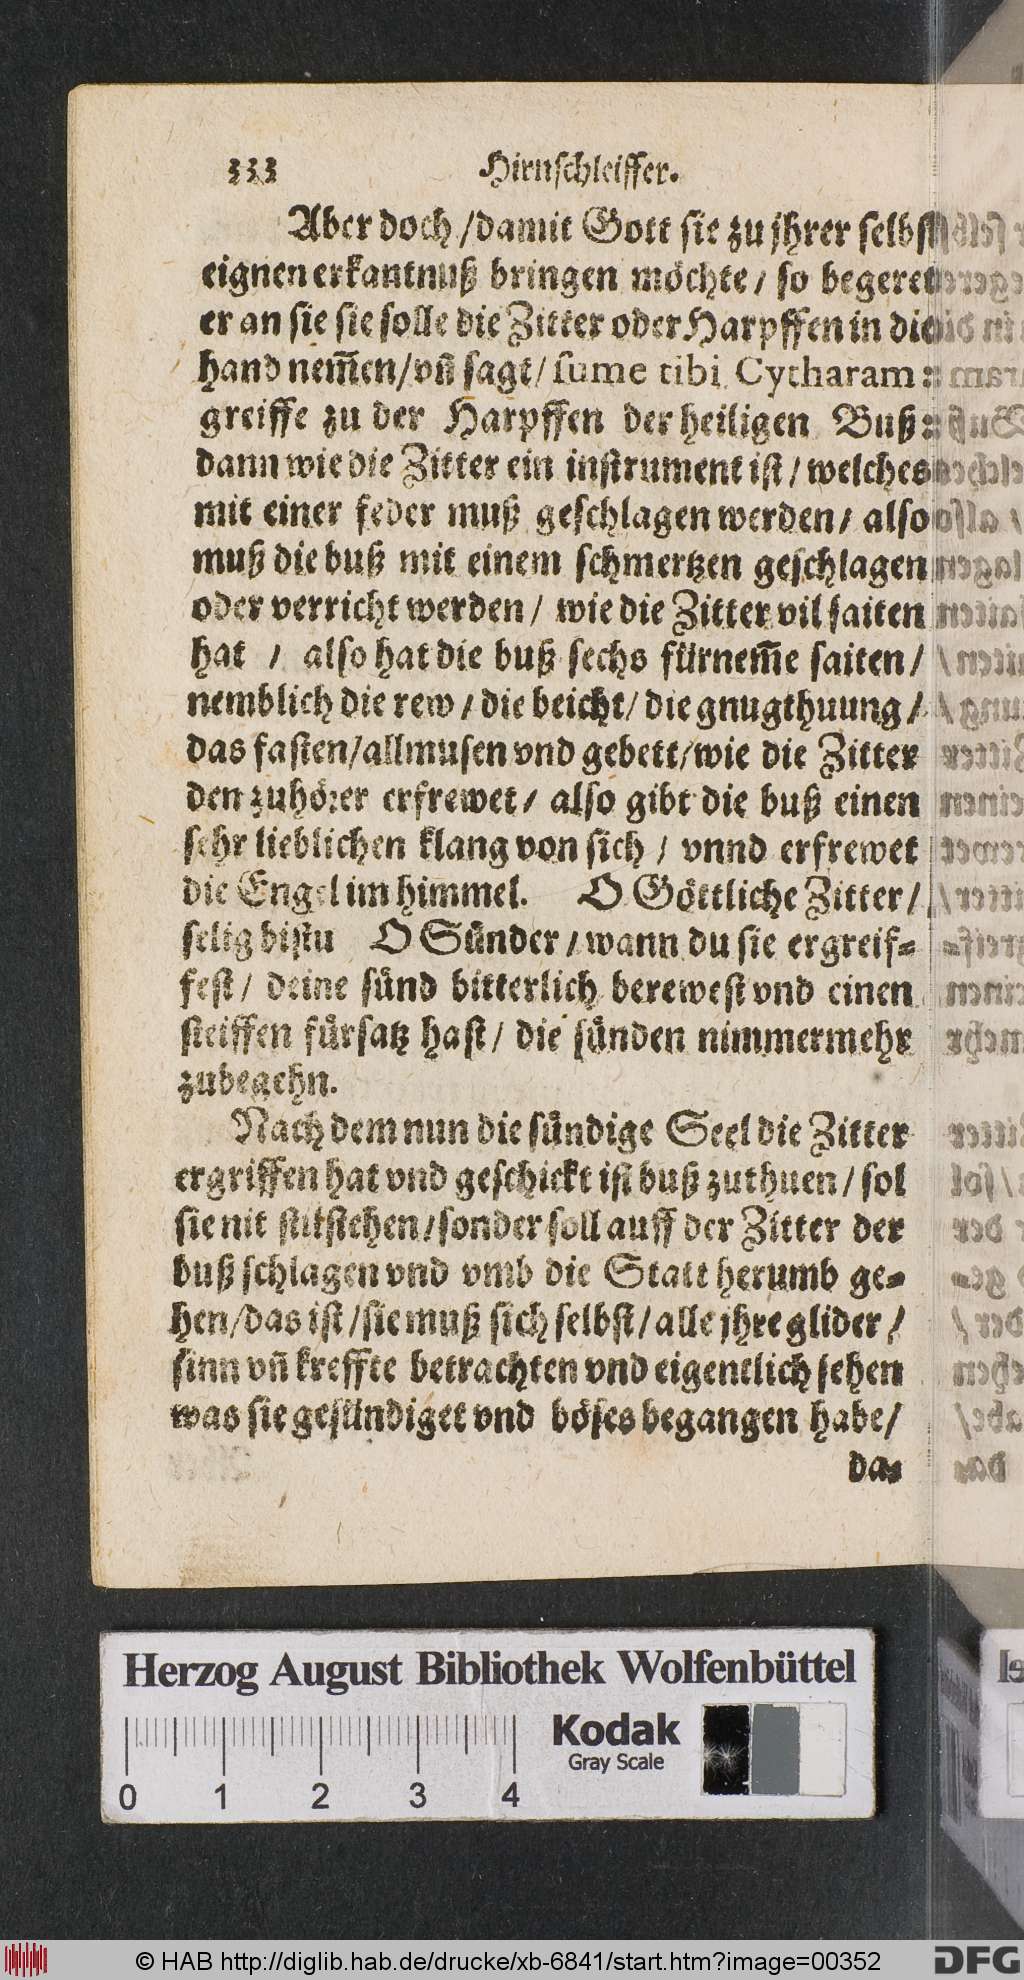 333 Hirnschleiffer.
Aber doch/damit Gott sie zu jhrer selbst
eignen erkantnuß bringen möchte/ so begeret
er an sie sie solle die Zitter oder Harpffen in die
hand nem̃en/vñ sagt/ sume tibi Cytharam:
greiffe zu der Harpffen der heiligen Buß:
dann wie die Zitter ein instrument ist/ welches
mit einer feder muß geschlagen werden/ also
muß die buß mit einem schmertzen geschlagen
oder verricht werden/ wie die Zitter vil saiten
hat / also hat die buß sechs fürnem̃e saiten/
nemblich die rew/ die beicht/ die gnugthuung/
das fasten/allmusen vnd gebett/wie die Zitter
den zuhörer erfrewet/ also gibt die buß einen
sehr lieblichen klang von sich/ vnnd erfrewet
die Engel im himmel. O Göttliche Zitter/
selig bistu O Sünder/ wann du sie ergreif-
fest/ deine sünd bitterlich berewest vnd einen
steiffen fürsatz hast/ die sünden nimmermehr
zubegehn.
Nach dem nun die sündige Seel die Zitter
ergriffen hat vnd geschickt ist buß zuthuen/ sol
sie nit stilstehen/sonder soll auff der Zitter der
buß schlagen vnd vmb die Statt herumb ge-
hen/das ist/sie muß sich selbst/ alle jhre glider/
sinn vñ kreffte betrachten vnd eigentlich sehen
was sie gesündiget vnd böses begangen habe/
da-
Herzog August Bibliothek Wolfenbüttel
Kodak
Gray Scale
0 1 2 3 4
© HAB http://diglib.hab.de/drucke/xb-6841/start.htm?image=00352
DFG